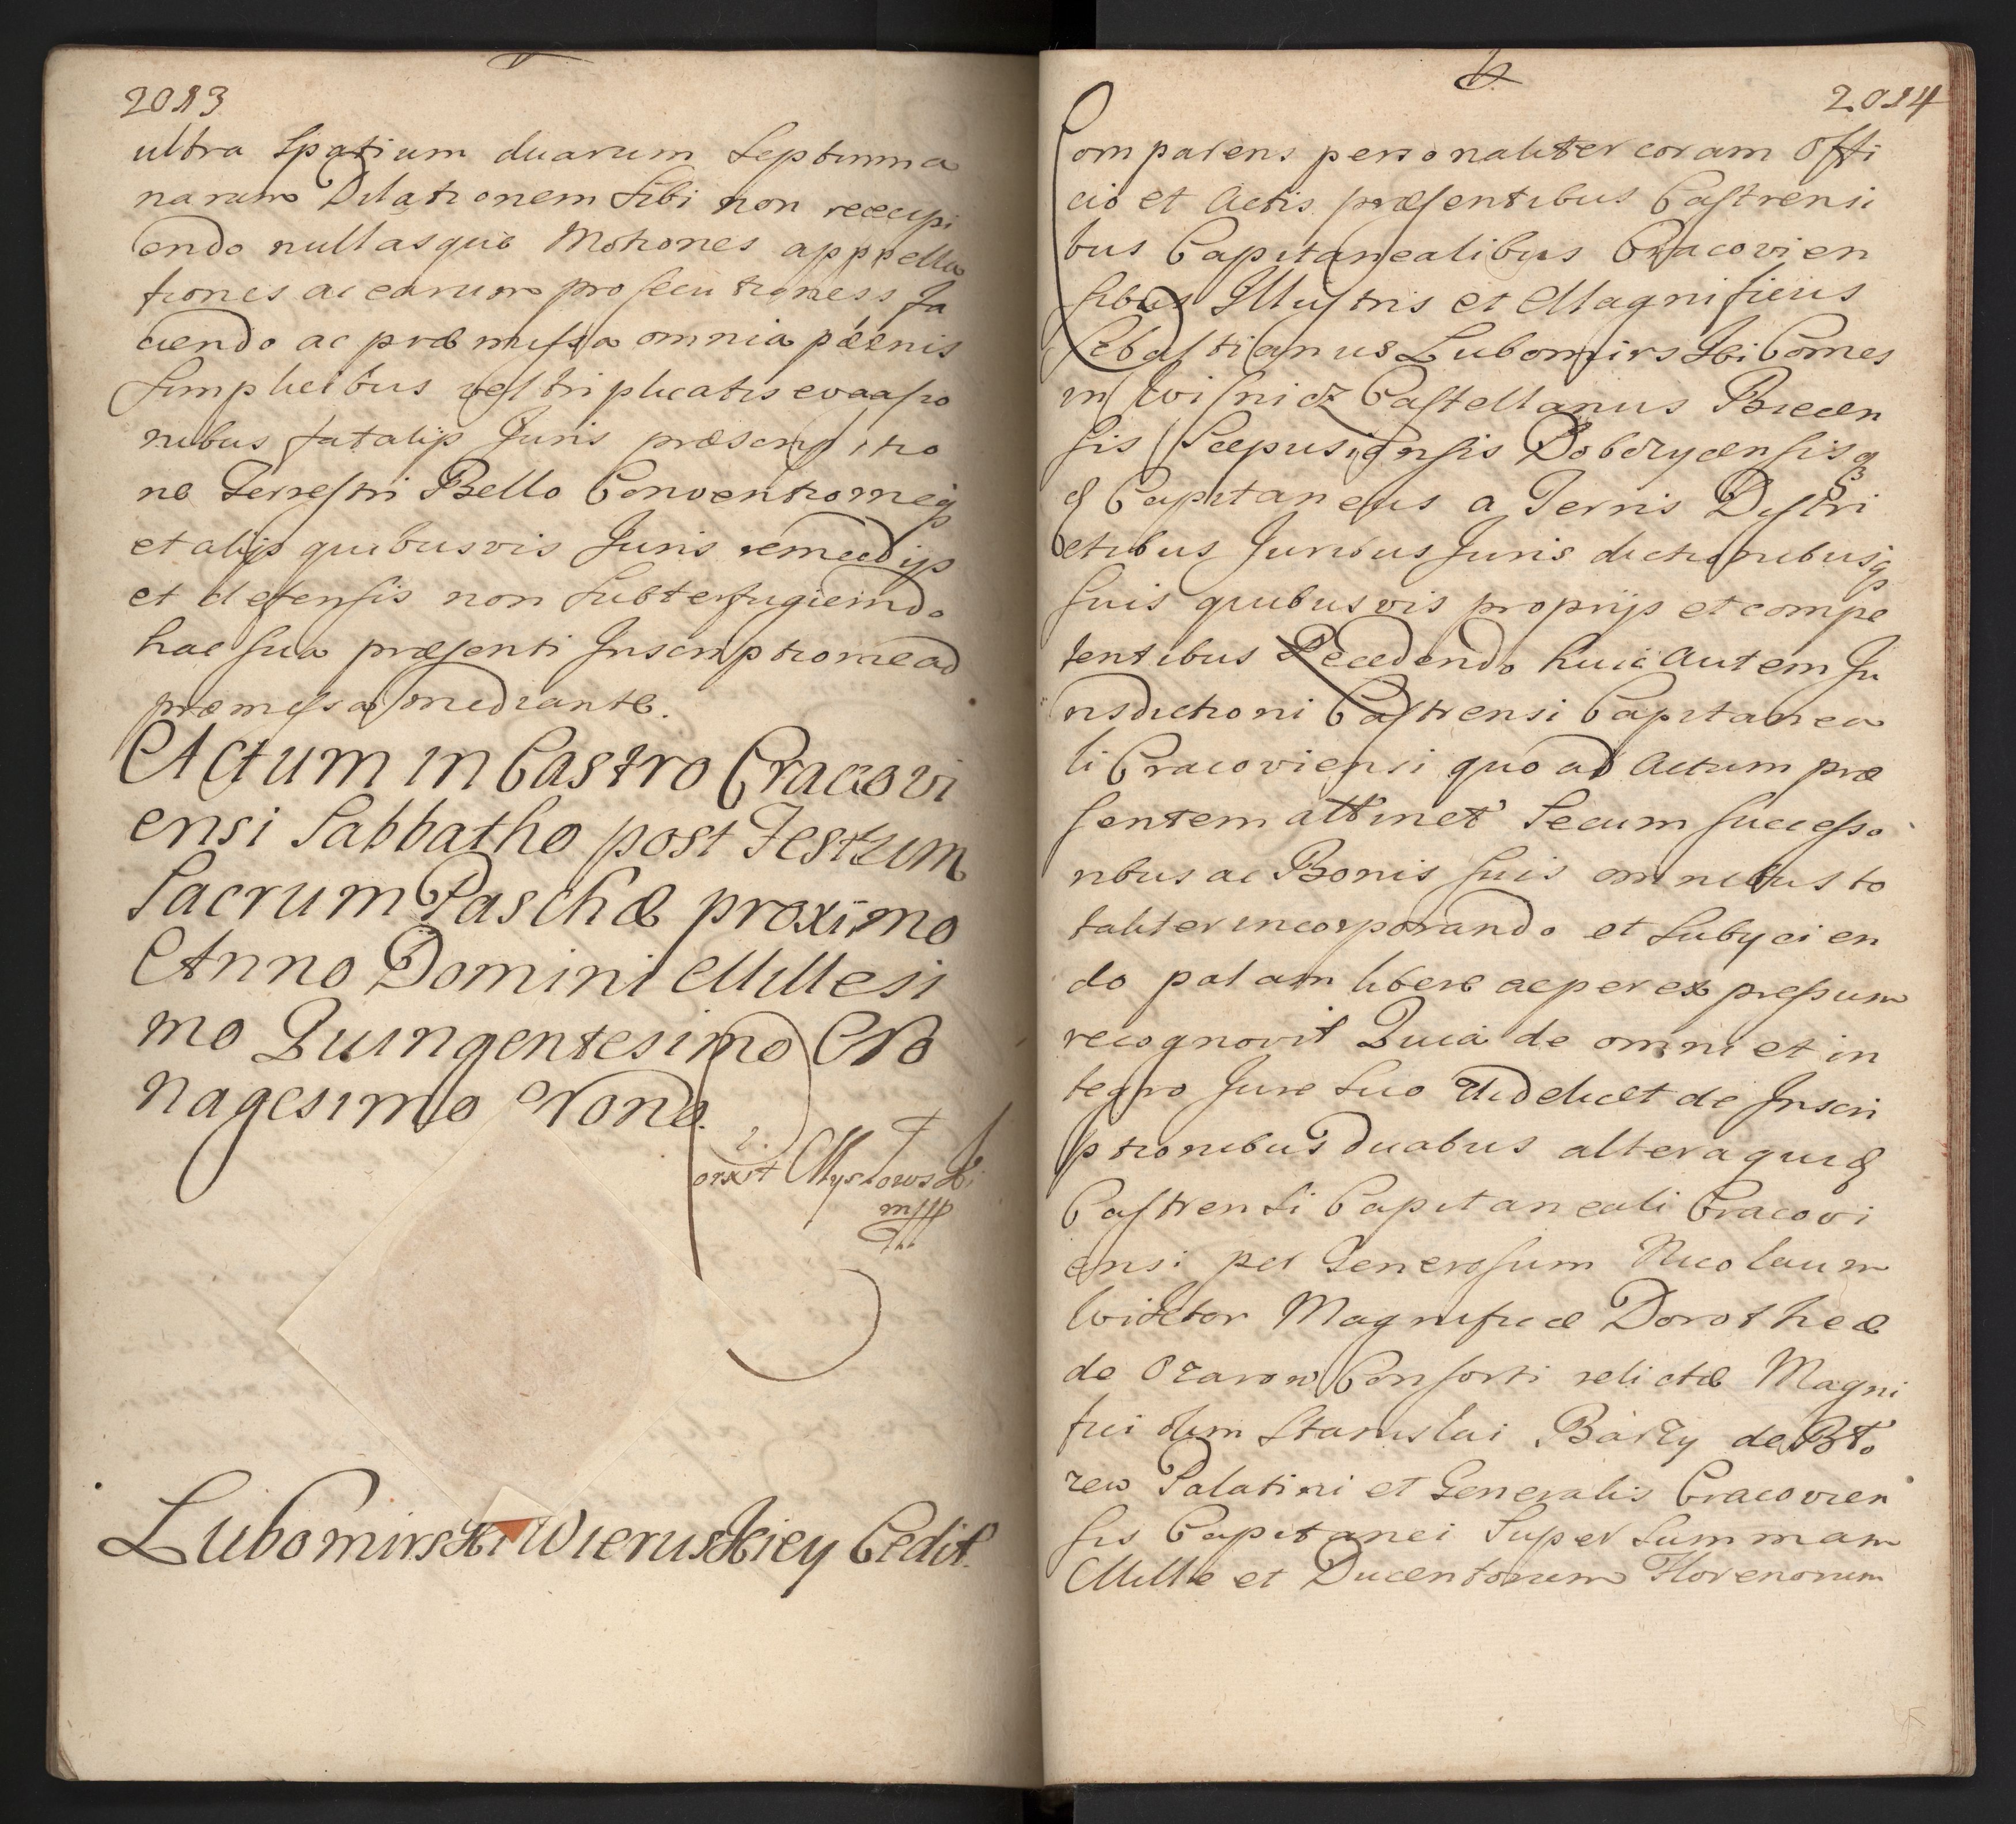 2013
ultra Spatium duarum Septimma
narum Dilationem Sibi non recipi
endo nullasque Motiones apppella
tiones ac earum prosecutiones Fa
ciendo ac præmissa omnia pœnis
Simplicibus vel triplicatis evasio
nibus fatalijs Juris præscriptio
ne Terrestri Bello Conventioneq
et alijs quibusvis Juris remedijs
et defensis non Subterfugiendo
hac sua præsenti Inscriptione ad
præmissa mediante.
Actum in Castro Cracovi
ensi Sabbatho post Festum
Sacrum Paschæ proximo
Anno Domini Millesi
mo Quingentesimo No
nagesimo Nono.
Myszkowski
mpp
Lubomirski Wieruskiey Cedit.
2014
Comparens personaliter coram Offi
cio et Actis præsentibus Castrensi
bus Capitanealibus Cracovien
sibus Illustris et Magnificus
Sebastianus Lubomirski Comes
in Wisnicz Castellanus Biecen
sis Scepusiensis Dobczycensisq
& Capitaneus a Terris Distri
ctibus Juribus Juris dictionibusq
suis quibusvis proprijs et compe
tentibus Recedendo huic autem Ju
risdictioni Castrensi Capitanea
li Cracoviensi quo ad Actum præ
sentem attinet Se cum successo
ribus ac Bonis suis omnibus to
taliter incorporando et Subijcien
do palam libere ac per expressum
recognovit Quia de omni et in
tegro Jure Suo videlicet de Inscri
ptionibus duabus altera quid
Castrensi Capitaneali Cracovi
ensi per Generosum Nicolaum
Magnificæ Dorotheæ
de Ozarow Consorti relictæ Magni
fici olim Stanislai Barzy de Bło
zew Palatini et Generalis Cracovien
sis Capitanei Super Summam
Mille et Ducentorum Florenorum